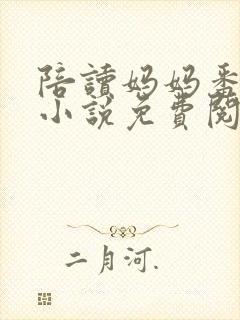 陪讀媽媽番
小說免費閱
二月河.